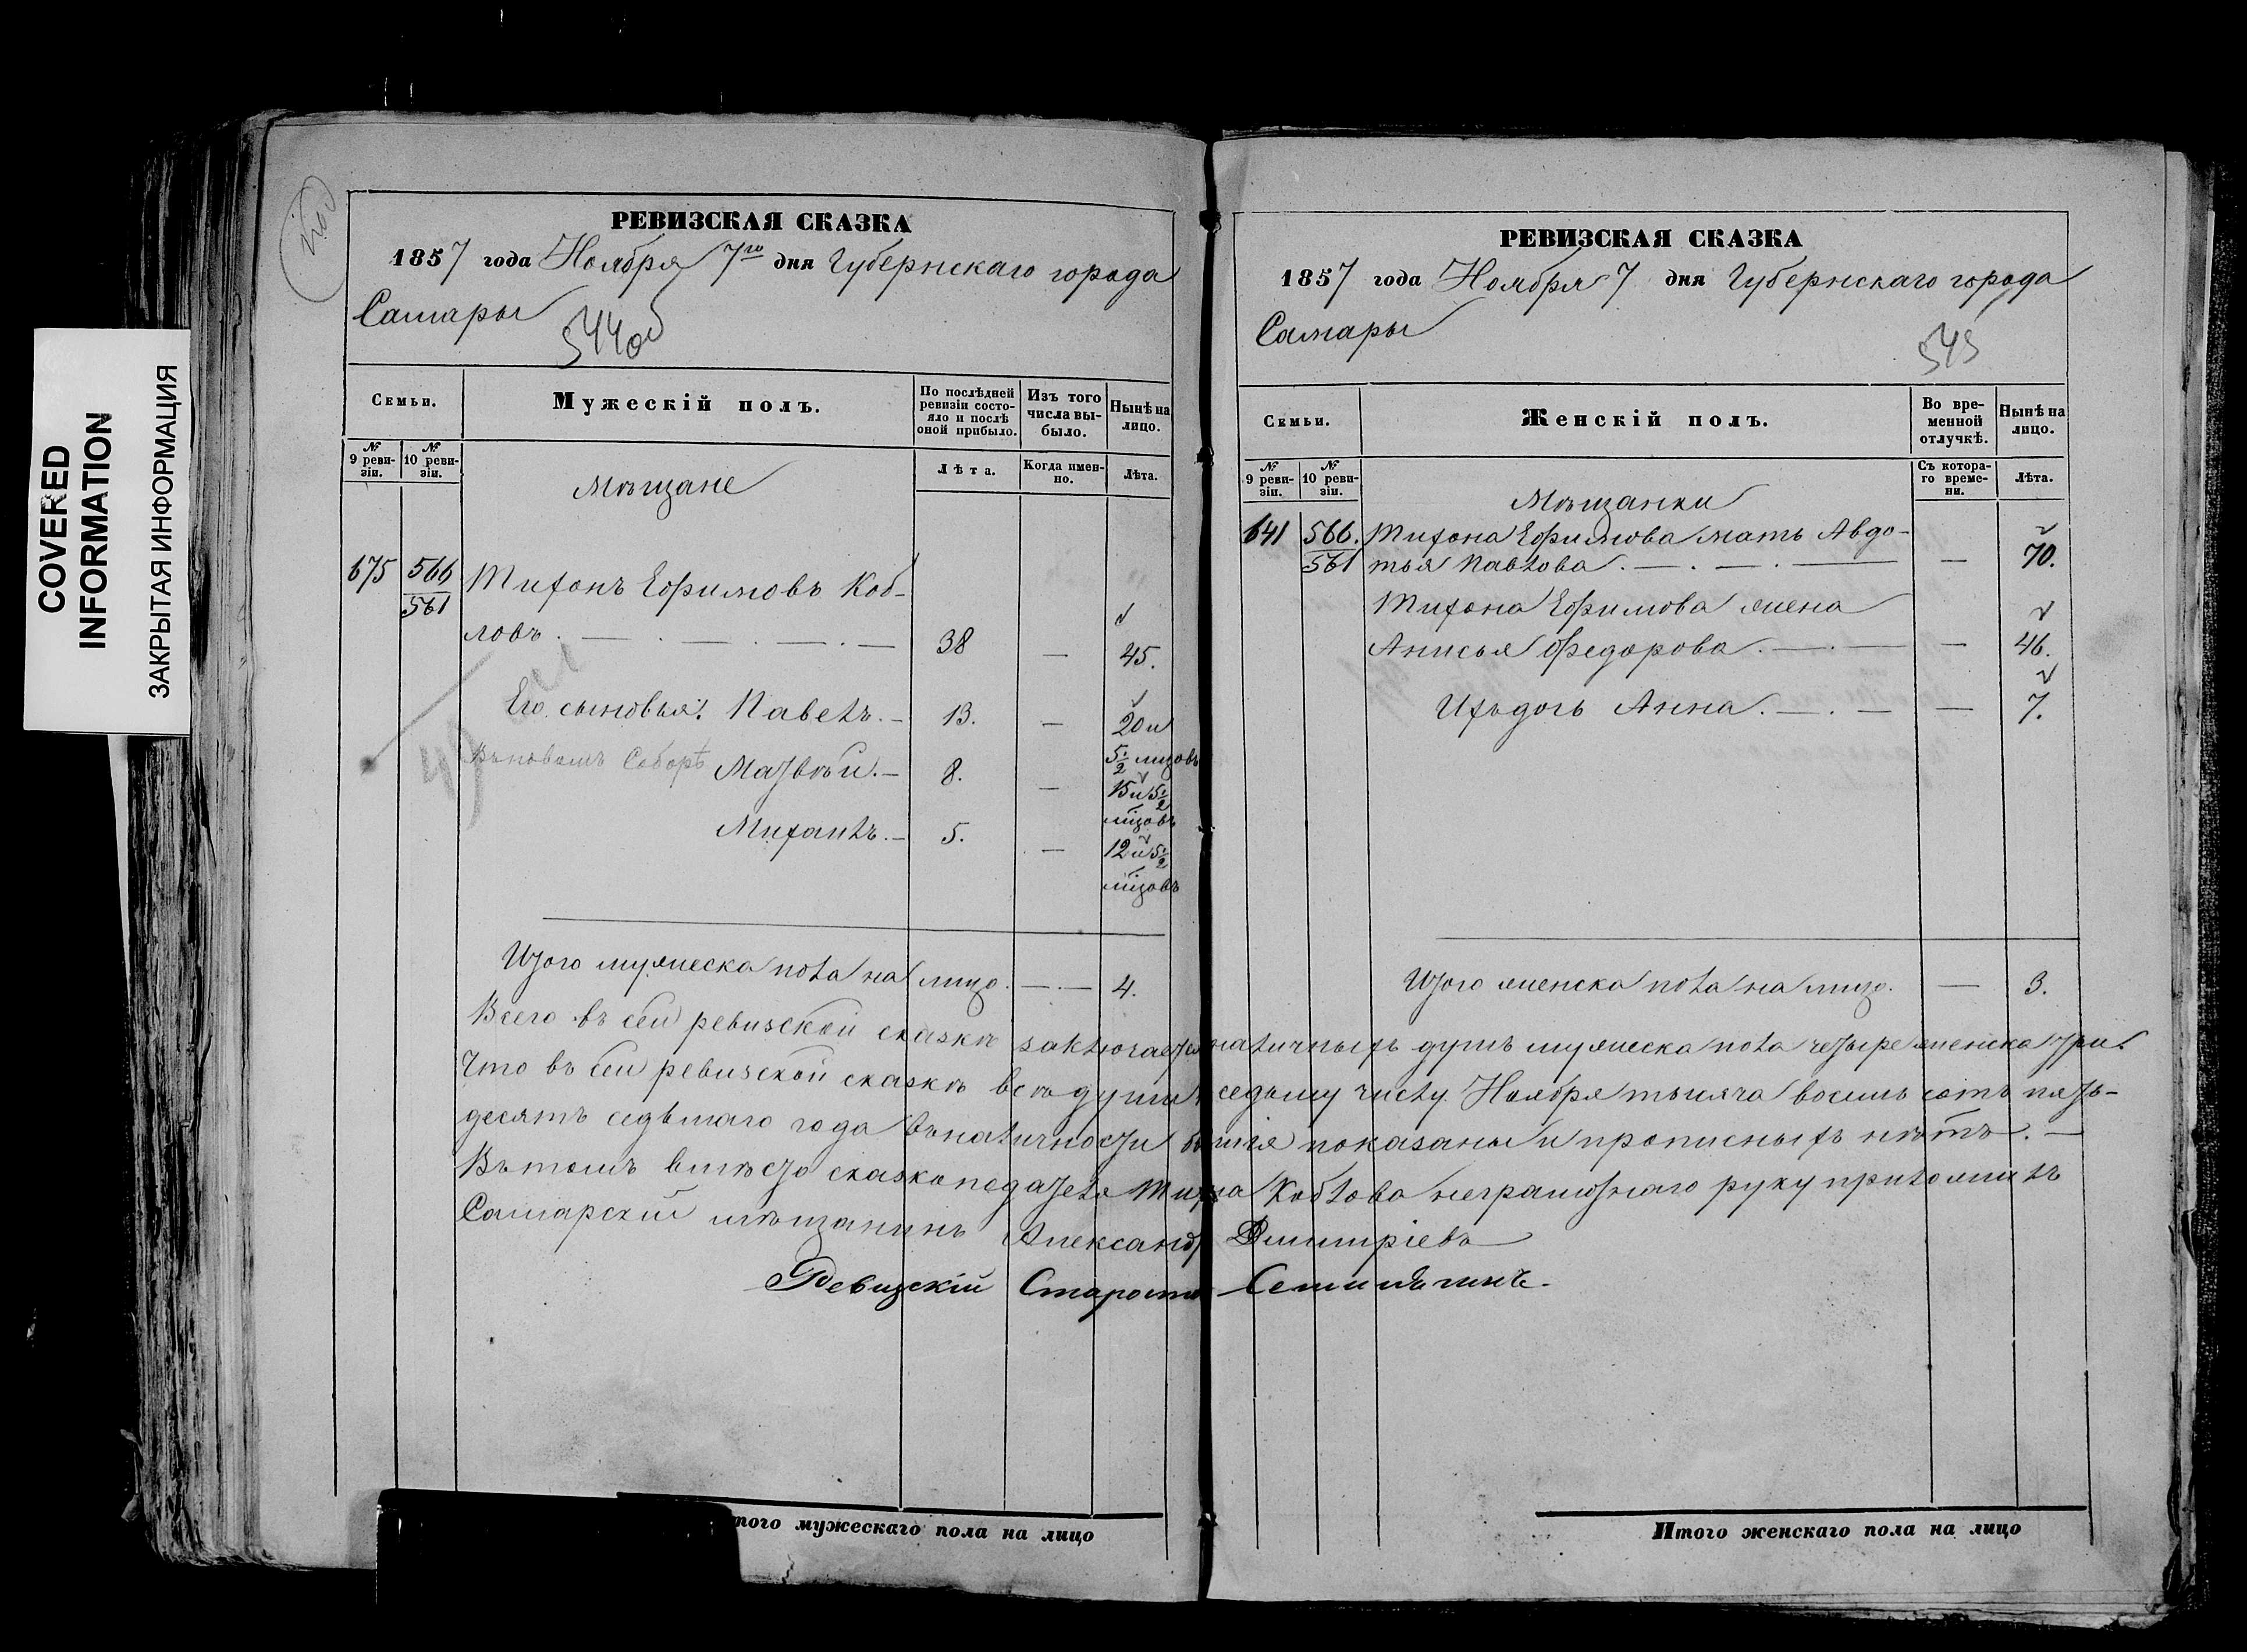 COVERED
INFORMATION
ЗАКРЫТАЯ ИНФОРМАЦИЯ
РЕВИЗСКАЯ СКАЗКА
1857 года Ноября 7го дня Губернскаго города
Самары
544об
Семьи.
Мужескій полъ.
По послѣдней ревизіи состо-
яло и послѣ
оной прибыло.
Изъ того
числа вы-
было.
Нынѣ на
лицо.
№ 9 реви-
зіи.
№ 10 реви-
зіи.
Лѣта.
Когда имен-
но.
Лѣта.
Мѣщане
675 566
561
Тихонъ Ефимовъ Коб-
ловъ. — 38 — 45.
Его сыновья: Павелъ. — 13. — 20 и
5½ мцовъ
Матвѣй. — 8. — 15 и 5½
мцовъ
Михаилъ. — 5. — 12 и 5½
мцовъ
Итого мужеска пола на лицо. — 4.
РЕВИЗСКАЯ СКАЗКА
1857 года Ноября 7 дня Губернскаго города
Самары
545
Семьи.
Женскій полъ.
Во вре-
менной
отлучкѣ.
Нынѣ на
лицо.
№ 9 реви-
зіи.
№ 10 реви-
зіи.
Съ котора-
го време-
ни.
Лѣта.
Мѣщанки
641 566.
561
Тихона Ефимова мать Авдо-
тья Павлова. — 70.
Тихона Ефимова жена
Анисья Федорова. — 46.
Ихъ дочь Анна. — 7.
Итого женска пола на лицо. — 3.
Всего въ сей ревизской сказкѣ заключается наличныхъ душъ мужеска пола четыре женска три.
Что въ сей ревизской сказкѣ всѣ души къ седьму числу Ноября тысяча восемь сотъ пять-
десятъ седьмаго года въ наличности бывшія показаны и прописныхъ нѣтъ. —
Въ томъ вмѣсто сказкоподателя Тихона Коблова неграмотнаго руку приложилъ
Самарскій мѣщанинъ Александръ Димитріевъ
Ревизскій Староста
Итого мужескаго пола на лицо
Итого женскаго пола на лицо